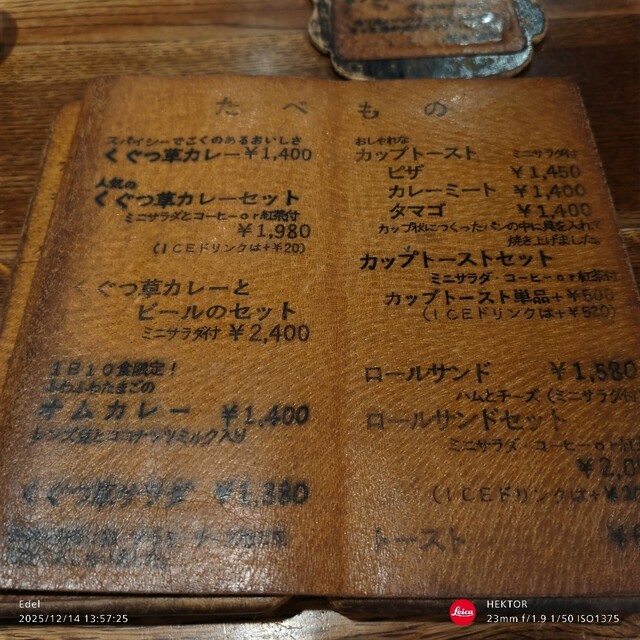 たべもの
スパイシーでこくのあるおいしさ
くぐつ草カレー ¥1,400
人気の
くぐつ草カレーセット
ミニサラダとコーヒーor紅茶付
¥1,980
(ICEドリンクは+¥20)
くぐつ草カレーと
ビールのセット
ミニサラダ付 ¥2,400
1日10食限定!
ふわふわたまごの
オムカレー ¥1,400
レンズ豆とココナッツミルク入り
くぐつ草サラダ ¥1,380
おしゃれな
カップトースト ミニサラダ付
ピザ ¥1,450
カレーミート ¥1,400
タマゴ ¥1,400
カップ状につくったパンの中に具を入れて
焼き上げました
カップトーストセット
ミニサラダ・コーヒーor紅茶付
カップトースト単品+¥500
(ICEドリンクは+¥520)
ロールサンド ¥1,580
ハムとチーズ (ミニサラダ付
ロールサンドセット
ミニサラダ・コーヒーor
¥2,0
(ICEドリンクは+
トースト
Edel
2025/12/14 13:57:25
Leica
HEKTOR
23mm f/1.9 1/50 ISO1375